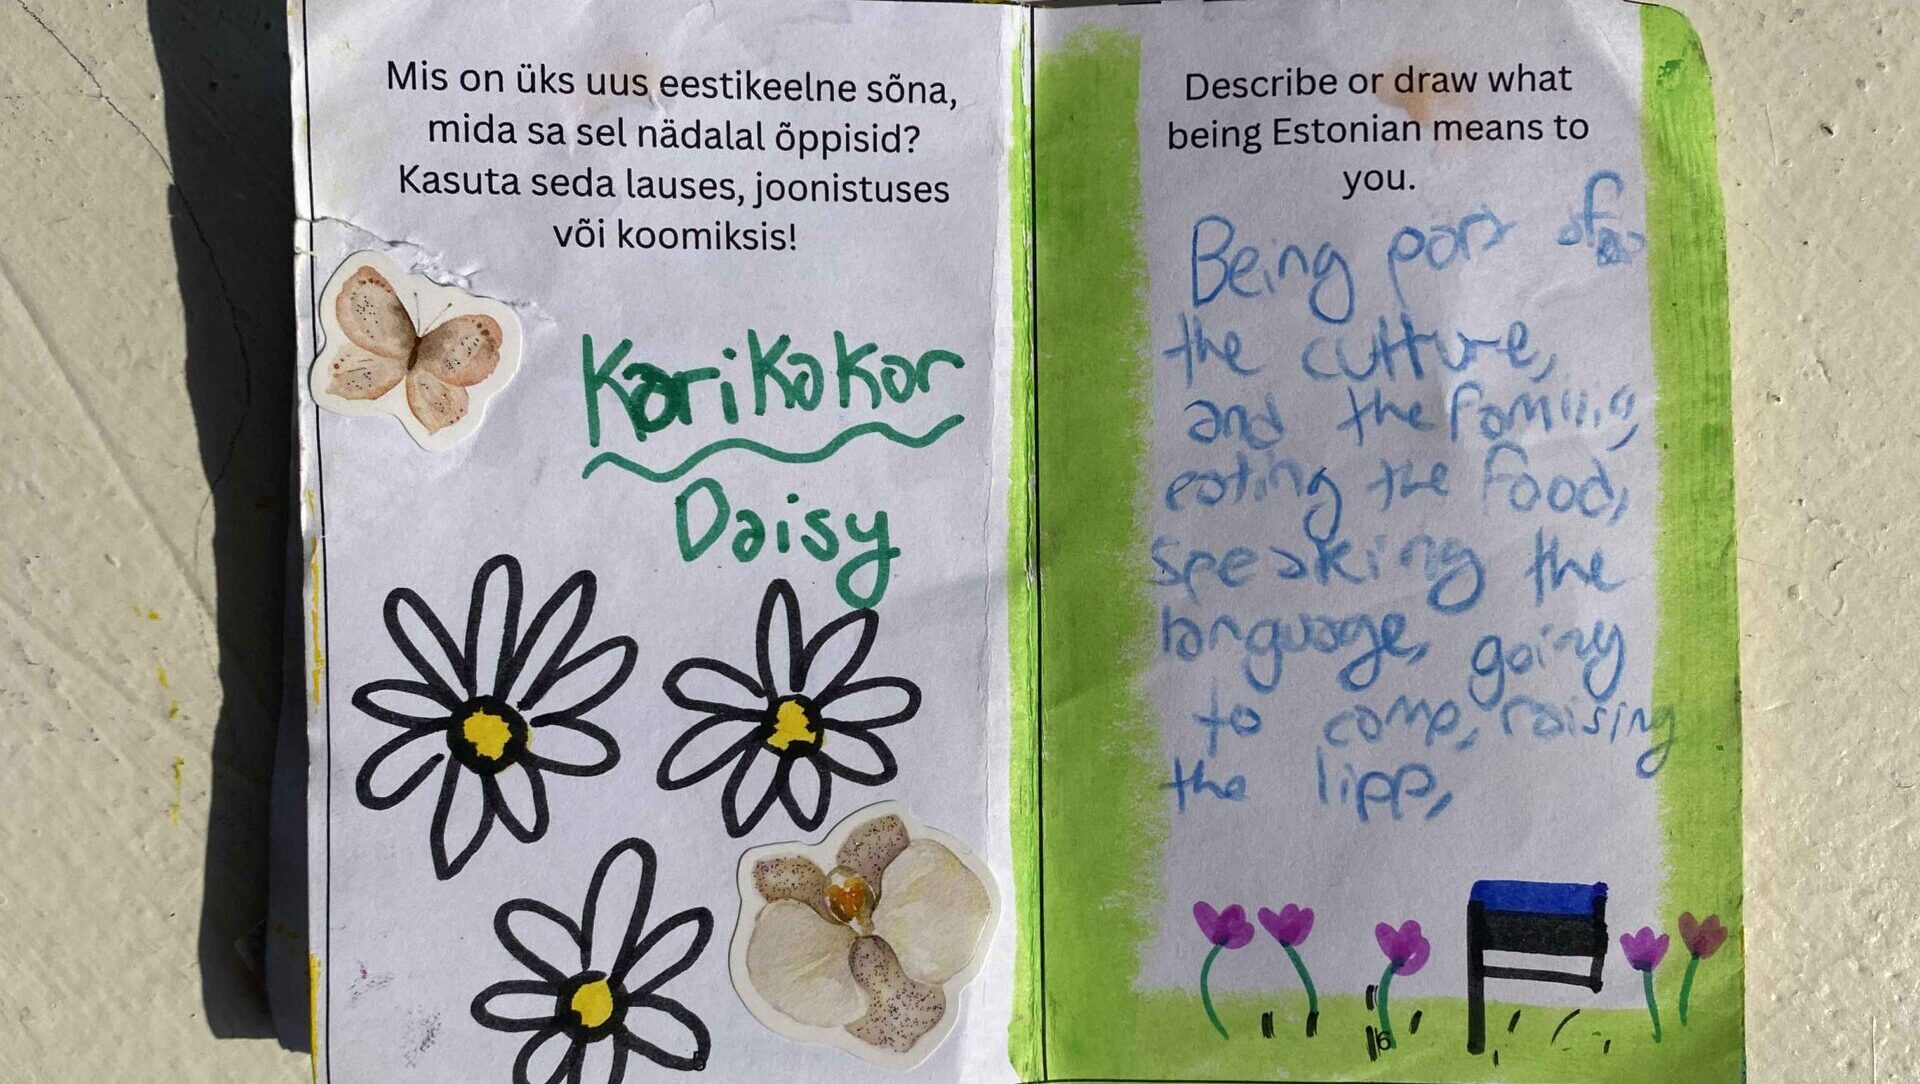 Mis on üks uus eestikeelne sõna,
mida sa sel nädalal õppisid?
Kasuta seda lauses, joonistuses
või koomiksis!
Karikakar
Daisy
Describe or draw what
being Estonian means to
you.
Being part of
the culture,
and the family,
eating the food,
speaking the
language, going
to camp, raising
the lipp,
6